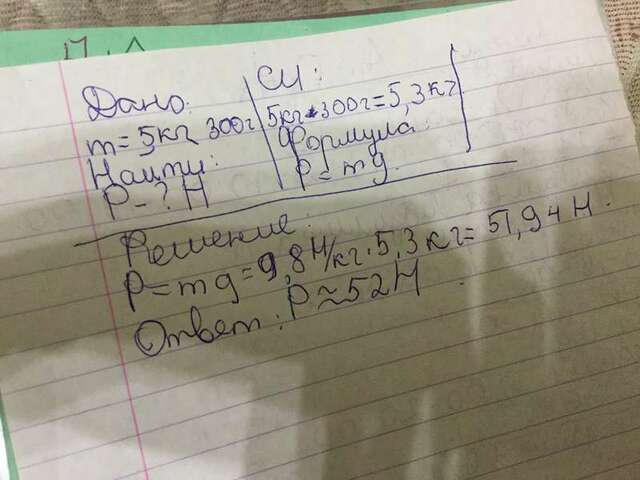 Дано:
m=5кг 300г
Найти:
P-? Н
СИ:
5кг 300г=5,3кг
Формула:
P=mg.
Решение:
P=mg=9,8Н/кг·5,3кг=51,94Н.
Ответ: P≈52Н